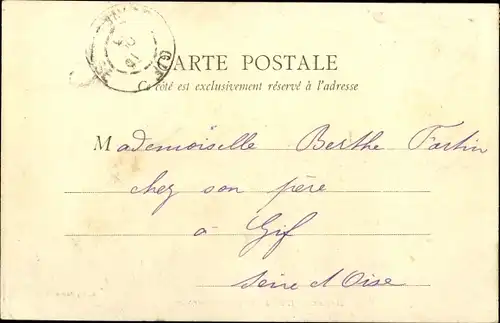 CARTE POSTALE
Ce côté est exclusivement réservé à l'adresse
Mademoiselle Berthe Fortin
chez son père
à Gif
Seine et Oise